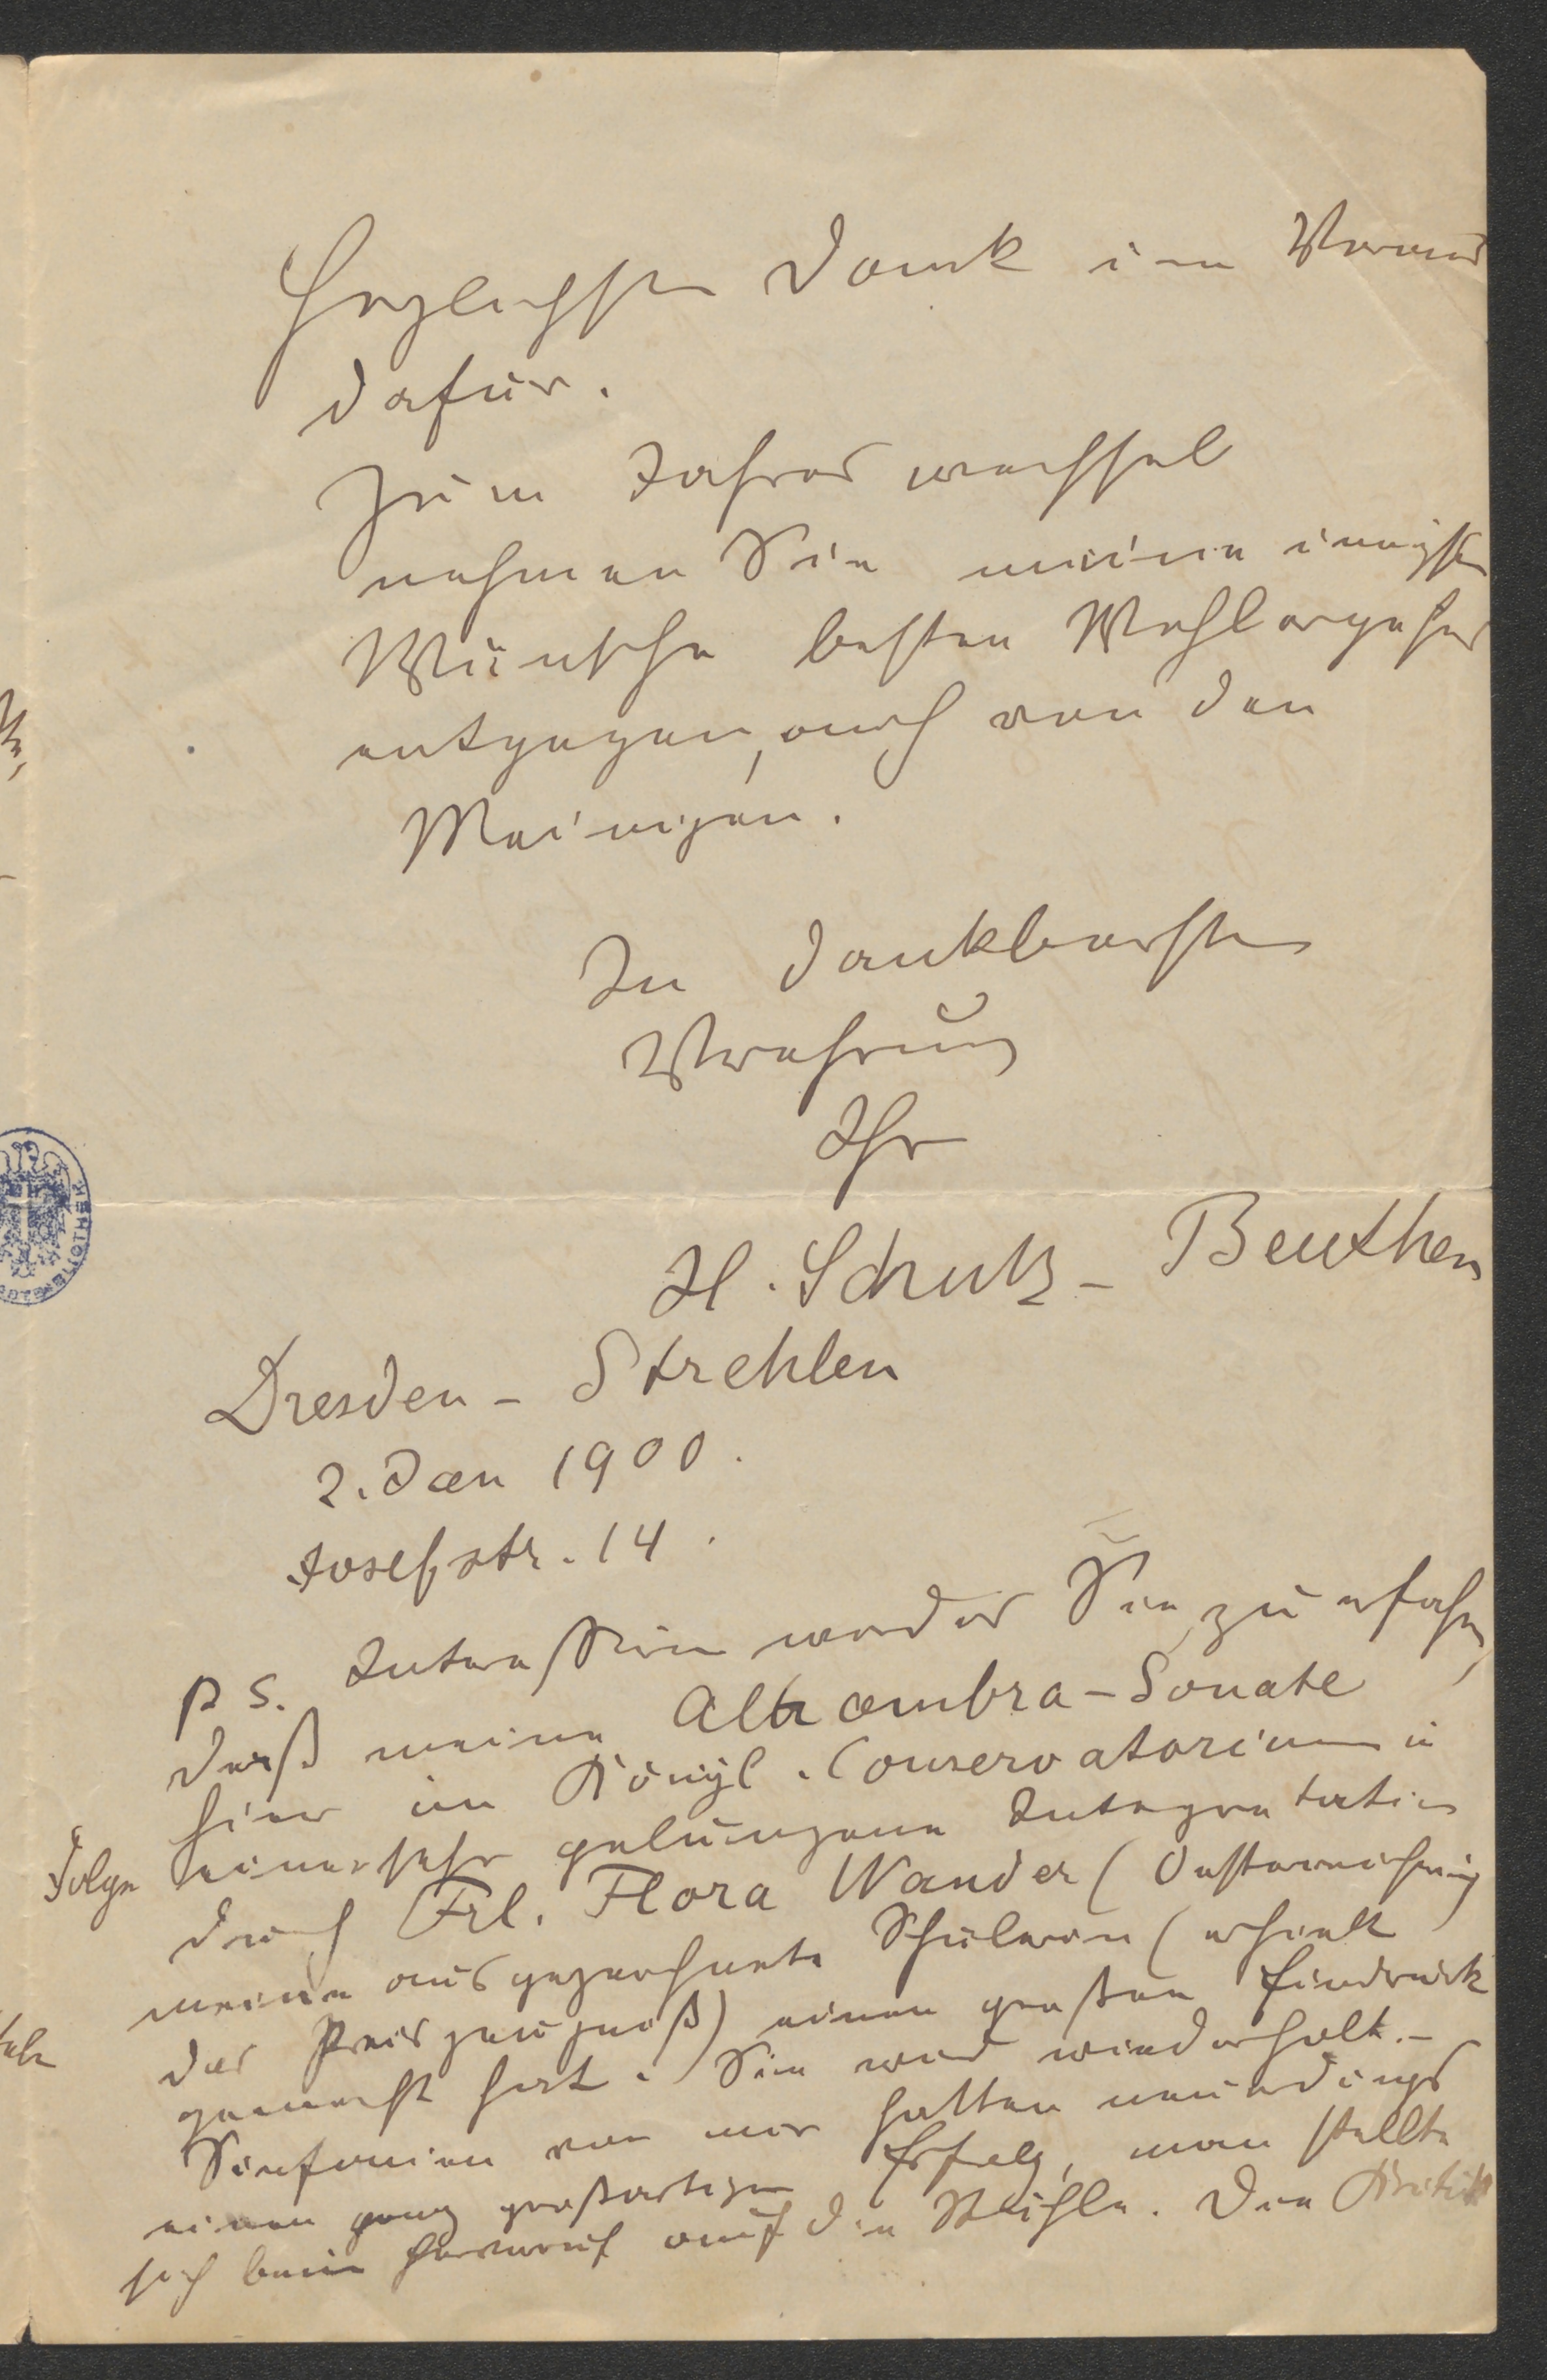 Herzlichsten Dank im Voraus
dafür.
Zum Jahreswechsel
nehmen Sie meine innigsten
Wünsche besten Wohlergehens
entgegen, auch von den
Meinigen.
In dankbarster
Verehrung
Ihr
H. Schulz-Beuthen
Dresden-Strehlen
2. Jan 1900.
Josefstr. 14.
P S. Interessiren wird es Sie zu erfahren,
daß meine Alhambra-Sonate
hier im Königl. Conservatorium in
Folge einer sehr gelungenen Interpretation
durch Frl. Flora Wander (Oesterreicherin)
meine ausgezeichnete Schülerin (erhielt
das Preiszeugniß) einen großen Eindruck
gemacht hat. Sie wird wiederholt.-
Sinfonien von mir hatten neuerdings
einen ganz großartigen Erfolg, man stellte
sich beim Hervorruf auf die Stühle. Die Kritik
BIBLIOTHEK